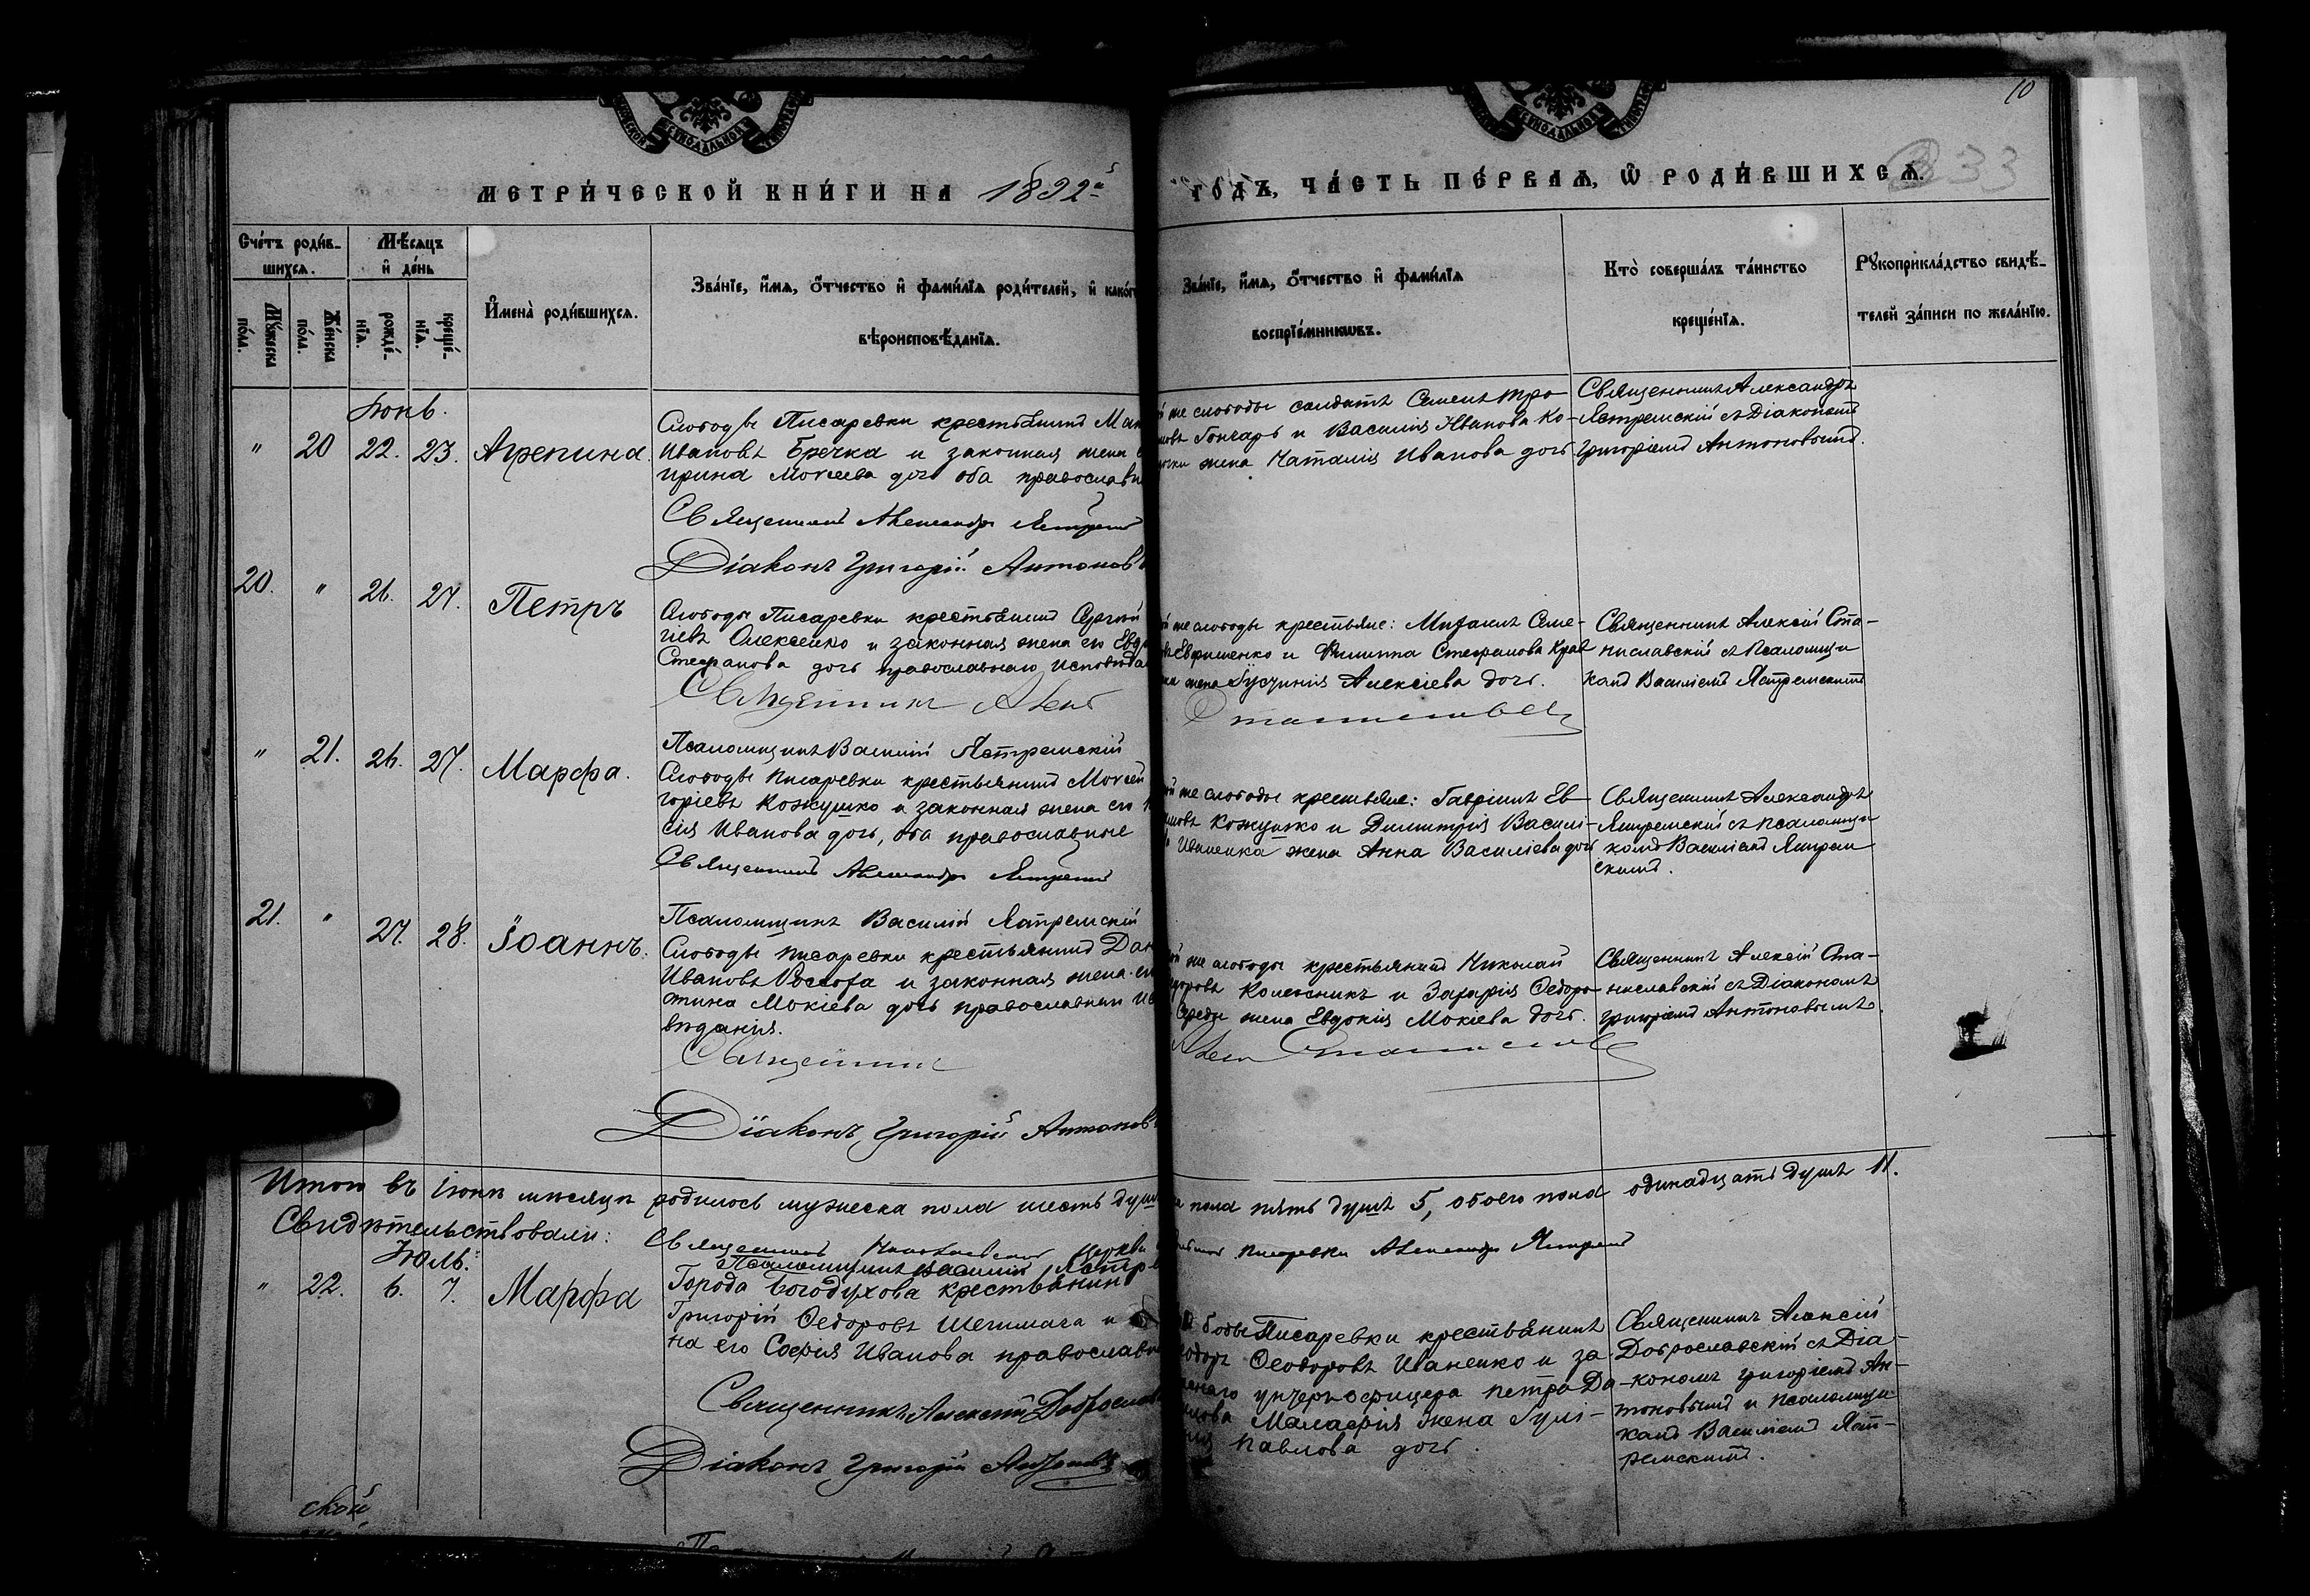 10
33
МЕТРИ́ЧЕСКОЙ КНИ́ГИ НА 1892й
ГО́ДЪ, ЧА́СТЬ ПЕ́РВАѦ, Ѡ҆ РОДИ́ВШИХСѦ.
Сче́тъ роди́в-
шихсѧ.
Мѣ́сѧцъ
и҆ де́нь
Мꙋ́жеска
по́ла.
Же́нска
по́ла.
рожде́-
нїѧ.
креще́-
нїѧ.
И҆мена̀ роди́вшихсѧ.
Зва́нїе, и҆́мѧ, ѻ҆́тчество и҆ фами́лїѧ роди́телей, и҆ како́г
вѣроисповѣ́данїѧ.
Зва́нїе, и҆́мѧ, ѻ҆́тчество и҆ фами́лїѧ
воспрїе́мникѡвъ.
Кто̀ соверша́лъ та́инство
креще́нїѧ.
Рꙋкоприкла́дство свидѣ́-
телей за́писи по жела́нїю.
Іюнь.
" 20 22. 23. Агрепина.
Слободы Писаревки крестьянинъ Мак
Ивановъ Бречка и законная жена е
ирина Моисеева дочь оба православн
Священникъ Александръ Ястремс
Діаконъ Григорій Антонов
же слободы солдатъ Семенъ Тро-
Гончарь и Василія Иванова Ко-
жена Наталія Иванова дочь
Священникъ Александръ
Ястремскій съ Діакономъ
Григоріемъ Антоновымъ.
20. " 26. 27. Петръ
Слободы Писаревки крестьянинъ Сергій
гіевъ Олексенко и законная жена его Евд
Стефанова дочь православнаго исповѣда
Священникъ Алек
же слободы крестьяне: Михаилъ Семе-
Ефименко и Филиппа Стефанова Крав
жена Іустинія Алексіева дочь.
Станиславск
Священникъ Алексій Ста-
ниславскій съ Псаломщи
комъ Василіемъ Ястремскимъ
" 21. 26. 27. Марфа.
Псаломщикъ Василій Ястремскій
Слободы Писаревки крестьянинъ Моисей
горіевъ Кожушко и законная жена его
сія Иванова дочь, оба православные
Священникъ Александръ Ястремс
же слободы крестьяне: Гавріилъ Ев
Кожушко и Димитрія Василі-
Иваненка жена Анна Василіева дочь
Священникъ Александръ
Ястремскій съ псаломщи
комъ Василіемъ Ястрем
скимъ.
21. " 27. 28. Іоаннъ.
Псаломщикъ Василій Ястремскій
Слободы Писаревки крестьянинъ Дан
Ивановъ и законная жена его
Мокіева дочь православнаго ис
вѣданія.
Священникъ
Діаконъ, Григорій Антонов
же слободы крестьянинъ Николай
Колесникъ и Захарія Ѳедоро-
Середы жена Евдокія Мокіева дочь.
Алек Станислав
Священникъ Алексій Ста-
ниславскій съ Діакономъ
Григоріемъ Антоновымъ.
Итого въ іюнѣ мѣсяцѣ родилось мужеска пола шесть душ
пола пять душъ 5, обоего пола одинадцать душъ 11.
Свидѣтельствовали:
Священникъ Николаевской церкви
Писаревки Александръ Ястремс
Псаломщикъ Василій Ястре
Іюль.
" 22. 6. 7. Марфа
Города Богодухова крестьянинъ
Григорій Ѳедоровъ и
на его Софія Иванова православн
Священникъ, Алексій Доброслав
Діаконъ, Григорій Антонов
боды Писаревки крестьянинъ
Ѳеодоровъ Иваненко и за
унтеръ-офицера Петра Да-
Малафія жена Іулі-
Павлова дочь.
Священникъ Алексій
Доброславскій съ Діа-
кономъ Григоріемъ Ан-
тоновымъ и псаломщи
комъ Василіемъ Яст-
ремскимъ.
ской